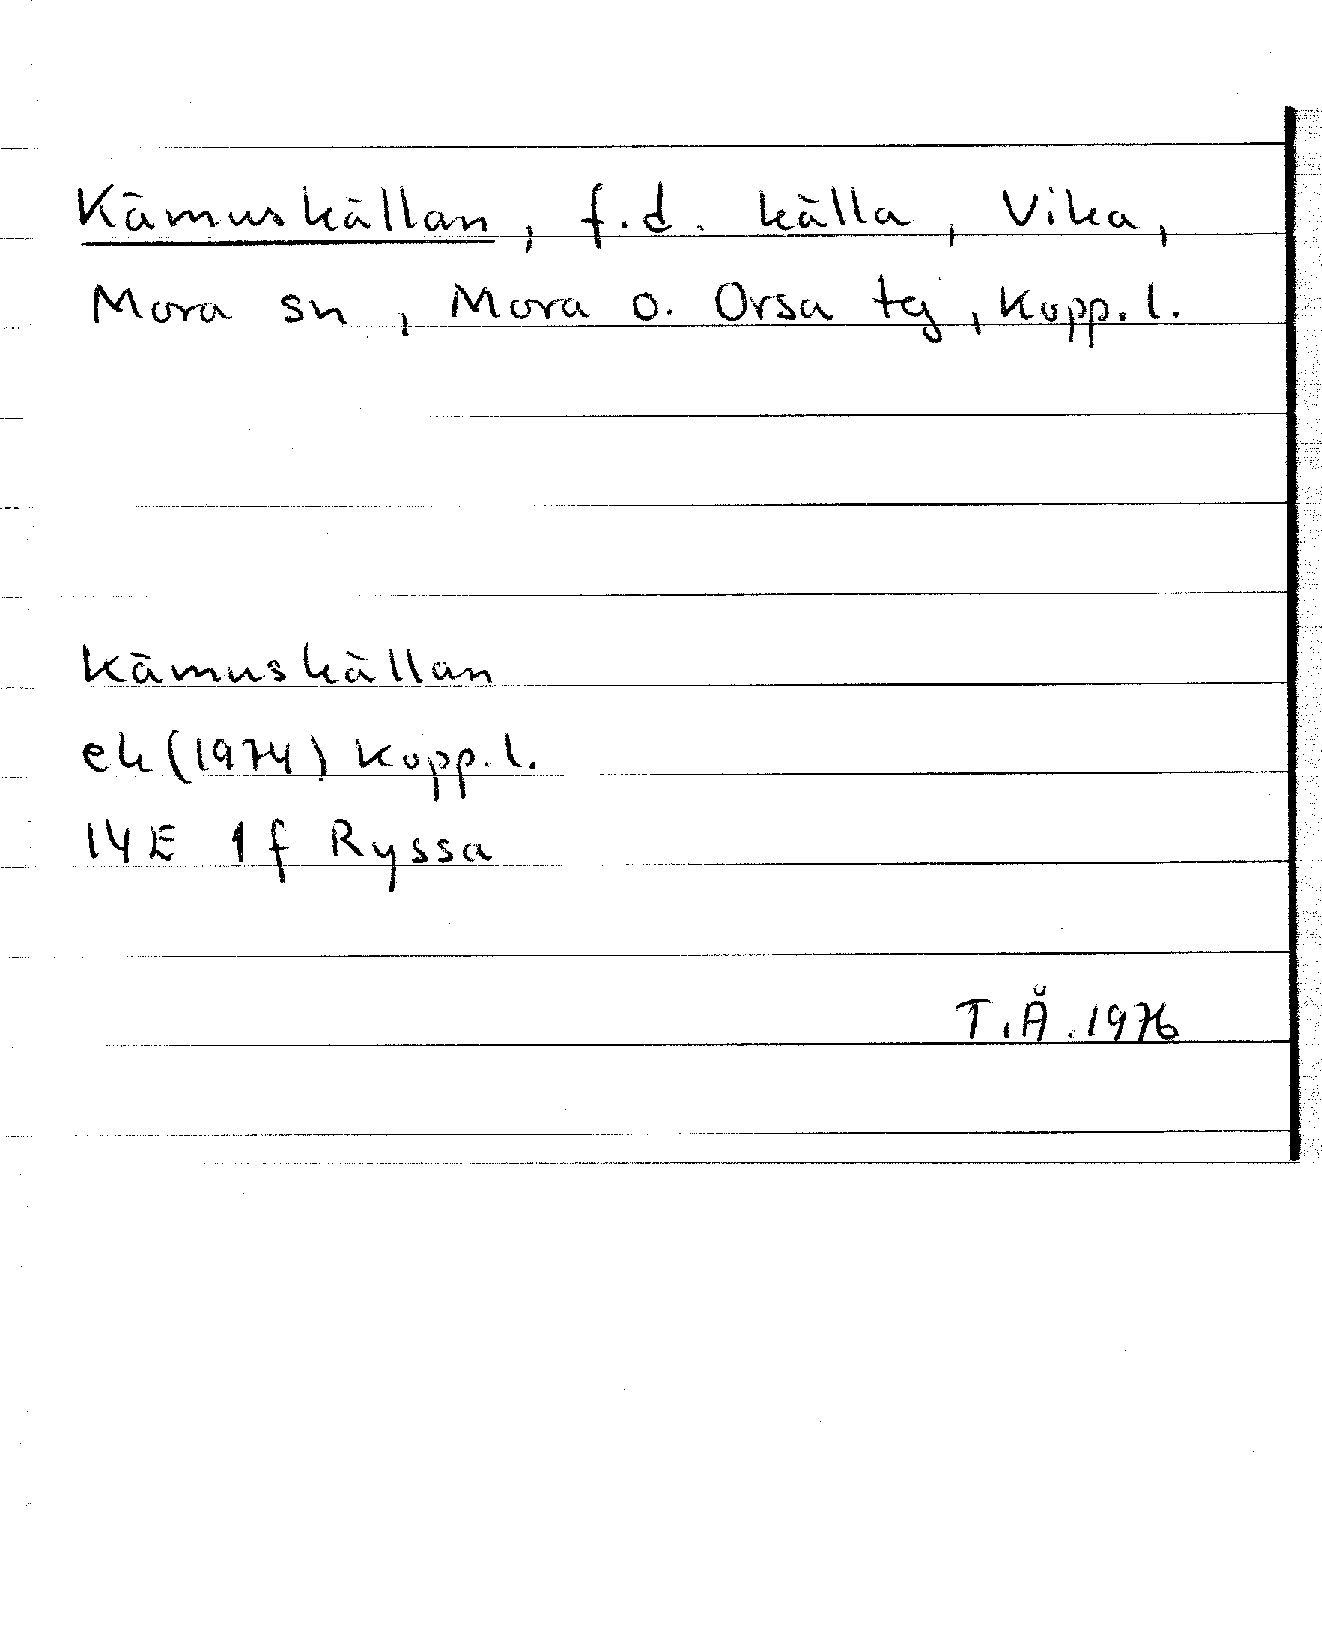 Kämuskällan, f.d. källa, Vika,
Mora sn, Mora o. Orsa tg, Kopp. l.
Kämuskällan
ek (1974) Kopp. l.
14E 1f Ryssa
T.Å. 1976